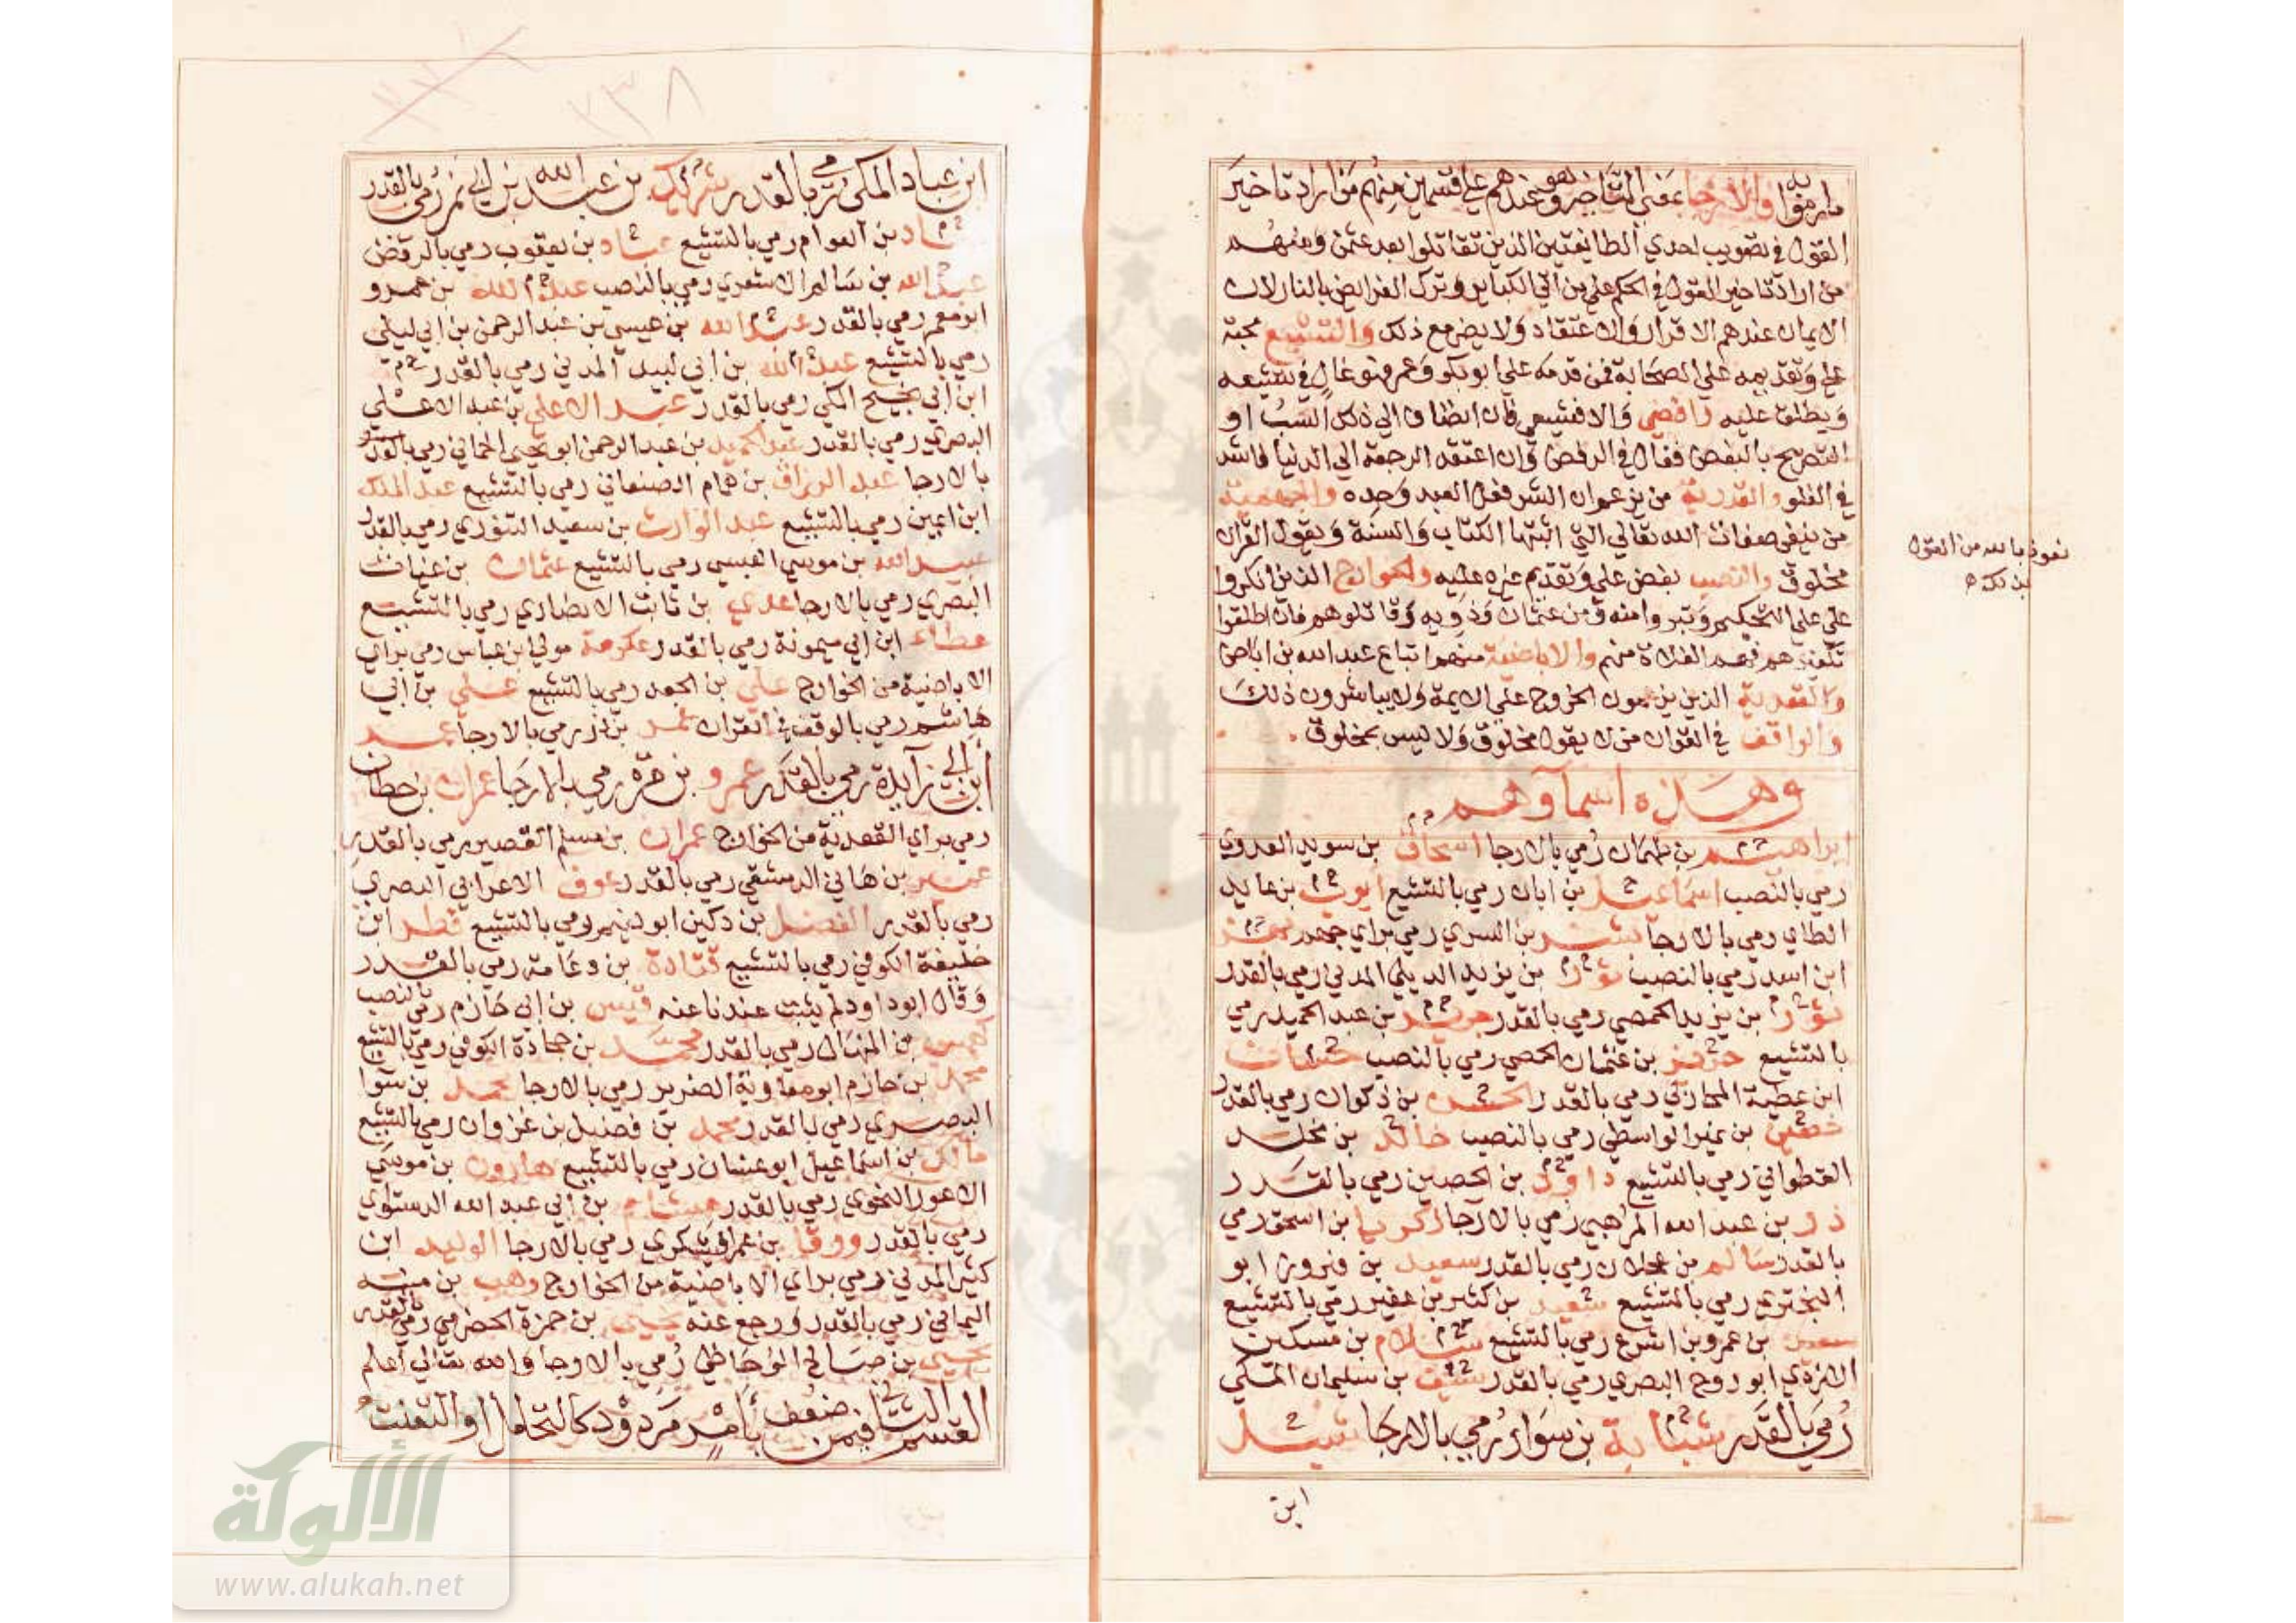 ما رموا به فالارجا بمعني التاخير وهو عندهم علي قسمين منهم من اراد تاخير
القول في تصويب احدي الطايفتين الذين تقاتلوا بعد عثمن ومنهم
من اراد تاخير القول في الحكم علي من اتي الكباير وترك الفرايض بالنار لان
الايمان عندهم الاقرار والاعتقاد ولا يضر مع ذلك والتشيع محبة
علي وتقديمه علي الصحابة فمن قدمه علي ابو بكر وعمر فهو غال في تشيعه
ويطلق عليه رافضي والا فشيعي فان انضاف الي ذلك السب او
التصريح بالبغض فغال في الرفض وان اعتقد الرجعة الي الدنيا فاشد
في الغلو والقدرية من يزعم ان الشر فعل العبد وحده والجهمية
من ينفي صفات الله تعالي التي اثبتها الكتاب والسنة ويقول القران
مخلوق والنصب بغض علي وتقديم غيره عليه والخوارج الذين انكروا
علي علي التحكيم وتبروا منه ومن عثمان وذويه وقاتلوهم فان اطلقوا
تكفيرهم فهم الغلاة منهم والاباضية منهم اتباع عبد الله بن اباض
والقعدية الذين يزعمون الخروج علي الايمة ولا يباشرون ذلك
والواقف في القران من لا يقول مخلوق ولا ليس بمخلوق
نعوذ بالله من القول
بذلك
وهذه اسماوهم
ابراهيم بن طهمان رمي بالارجا اسحاق بن سويد العدوي
رمي بالنصب اسماعيل بن ابان رمي بالتشيع ايوب بن عايد
الطاي رمي بالارجا بشر بن السري رمي براي جهم بهز
ابن اسد رمي بالنصب ثور بن يزيد الديلي المدني رمي بالقدر
ثور بن يزيد الحمصي رمي بالقدر جرير بن عبد الحميد رمي
بالتشيع حريز بن عثمان الحمصي رمي بالنصب حسان
ابن عطية المحاربي رمي بالقدر الحسن بن ذكوان رمي بالقدر
حصين بن نمير الواسطي رمي بالنصب خالد بن مخلد
القطواني رمي بالتشيع داود بن الحصين رمي بالقدر
ذر بن عبد الله المرهبي رمي بالارجا زكريا بن اسحق رمي
بالقدر سالم بن عجلان رمي بالقدر سعيد بن فيروز ابو
البختري رمي بالتشيع سعيد بن كثير بن عفير رمي بالتشيع
سعيد بن عمرو بن اشوع رمي بالتشيع سلام بن مسكين
الازدي ابو روح البصري رمي بالقدر سيف بن سليمان المكي
رمي بالقدر شبابة بن سوار رمي بالارجا شبل
ابن
٢٣٨
ابن عباد المكي رمي بالقدر شريك بن عبد الله بن ابي نمر رمي بالقدر
عباد بن العوام رمي بالتشيع عباد بن يعقوب رمي بالرفض
عبد الله بن سالم الاشعري رمي بالنصب عبد الله بن عمرو
ابو معمر رمي بالقدر عبد الله بن عيسي بن عبد الرحمن بن ابي ليلي
رمي بالتشيع عبد الله بن ابي لبيد المدني رمي بالقدر
ابن ابي نجيح المكي رمي بالقدر عبد الاعلي بن عبد الاعلي
البصري رمي بالقدر عبد الحميد بن عبد الرحمن ابو يحيي الحماني رمي
بالارجا عبد الرزاق بن همام الصنعاني رمي بالتشيع عبد الملك
ابن اعين رمي بالتشيع عبد الوارث بن سعيد التنوري رمي بالقدر
عبيد الله بن موسي العبسي رمي بالتشيع عثمان بن غياث
البصري رمي بالارجا عدي بن ثابت الانصاري رمي بالتشيع
عطاء ابن ابي ميمونة رمي بالقدر عكرمة مولي ابن عباس رمي براي
الاباضية من الخوارج علي بن الجعد رمي بالتشيع علي بن ابي
هاشم رمي بالوقف في القران عمر بن ذر رمي بالارجا عمر
ابن ابي زايدة رمي بالقدر عمرو بن مرة رمي بالارجا عمران بن حطان
رمي براي القعدية من الخوارج عمران بن مسلم القصير رمي بالقدر
عمير بن هاني الدمشقي رمي بالقدر عوف الاعرابي البصري
رمي بالقدر الفضل بن دكين ابو نعيم رمي بالتشيع فطر ابن
خليفة الكوفي رمي بالتشيع قتادة بن دعامة رمي بالقدر
وقال ابو داود لم يثبت عندنا عنه قيس بن ابي حازم رمي بالنصب
كهمس بن المنهال رمي بالقدر محمد بن جحادة الكوفي رمي بالتشيع
محمد بن حازم ابو معاوية الضرير رمي بالارجا محمد بن سوا
البصري رمي بالقدر محمد بن فضيل بن غزوان رمي بالتشيع
مالك بن اسماعيل ابو غسان رمي بالتشيع هارون بن موسي
الاعور النحوي رمي بالقدر هشام بن ابي عبد الله الدستواي
رمي بالقدر ورقا بن عمر اليشكري رمي بالارجا الوليد ابن
كثير المدني رمي براي الاباضية من الخوارج وهب بن منبه
اليماني رمي بالقدر ورجع عنه يحيي بن حمزة الحضرمي رمي بالقدر
يحيي بن صالح الوحاظي رمي بالارجا والله تعالي اعلم
القسم الثاني فيمن ضعف بامر مردود كالتحامل او التعنت
الألوكة
www.alukah.net